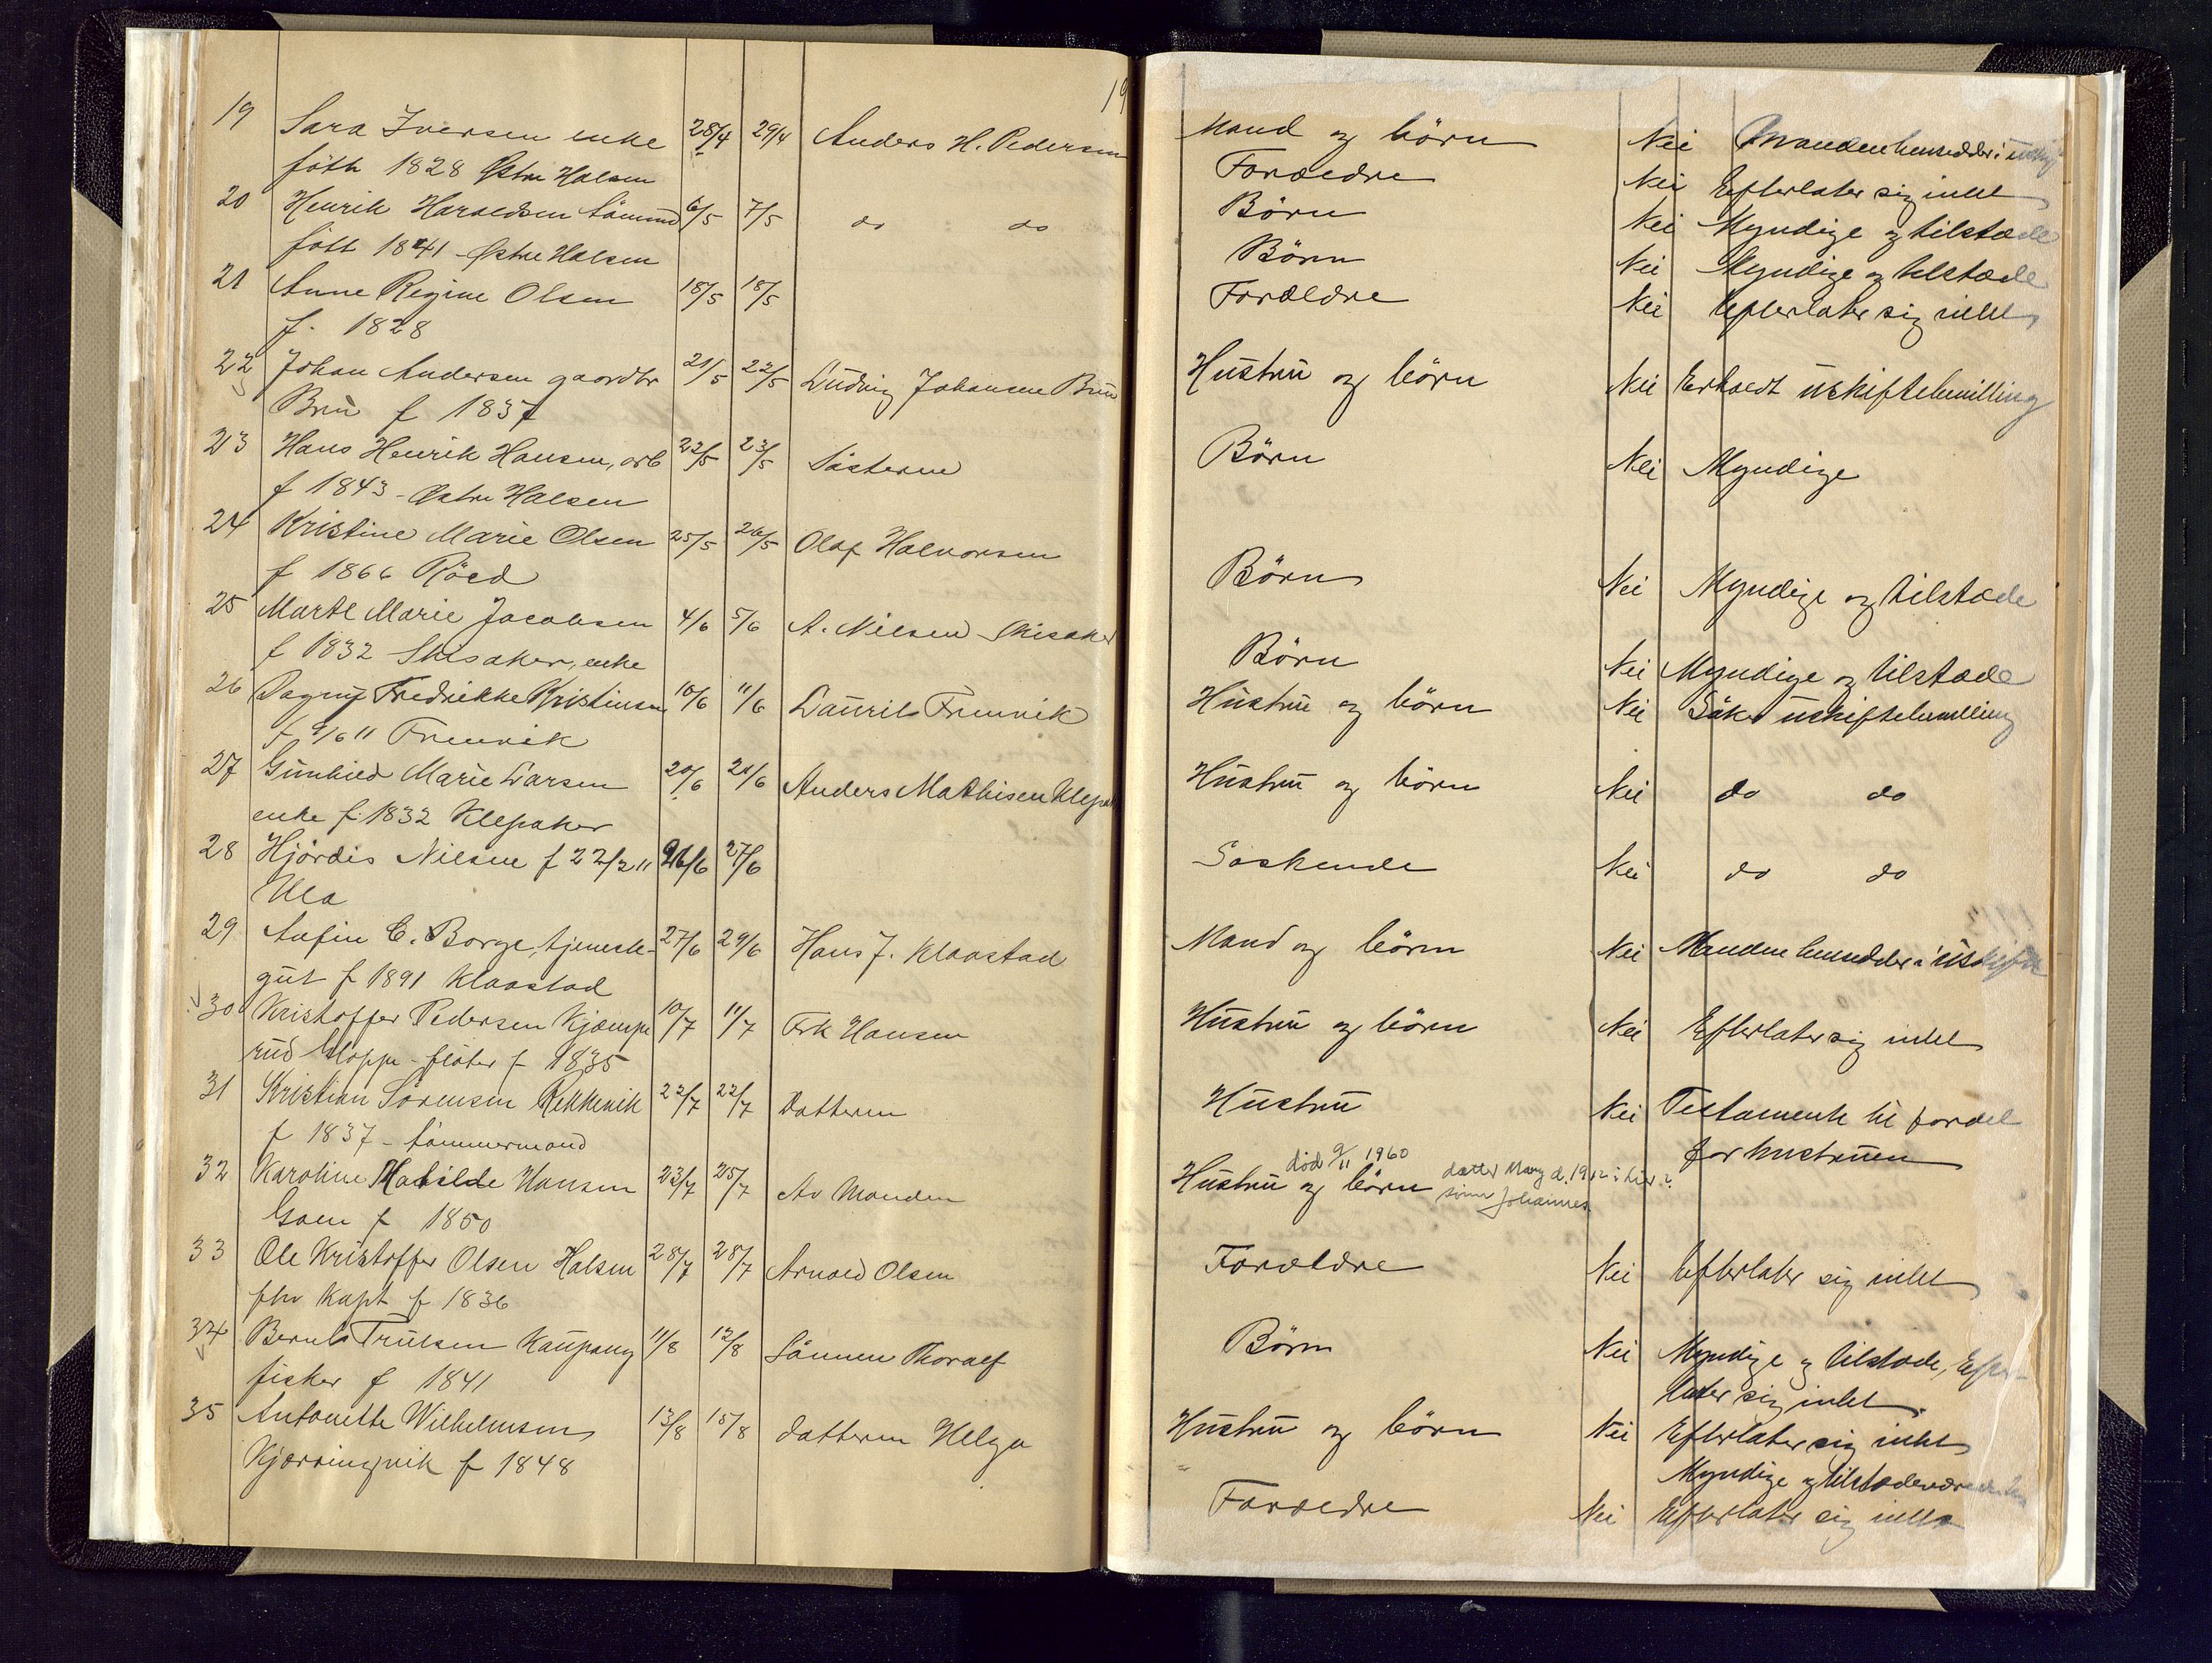 19
19 Sara Iversen enke 28/4 29/4 Anders H. Pedersen
föth 1828 Østre Halsen
20 Henrik Haraldsen tömmd 6/5 7/5 do do
föth 1841 - Østre Halsen
21 Anne Regine Olsen 18/5 18/5
f. 1828
22 Johan Andersen gaardbr 21/5 22/5 Ludvig Johansen Brü
Brü f 1837
23 Hans Henrik Hansen, arb 22/5 23/5 Søsteren
f 1843 - Østre Halsen
24 Kristine Marie Olsen 25/5 26/5 Olaf Halvorsen
f 1866 Röed
25 Marte Marie Jacobsen 4/6 5/6 A. Nilsen Skisaker
f 1832 Skisaker, enke
26 Dagny Fredrikke Kristiansen 10/6 11/6 Laurits Fremvik
f 9/6 11 Fremvik
27 Günhild Marie Larsen 20/6 21/6 Anders Mathisen Klepak
enke f. 1832 Klepaker
28 Hjördis Nilsen f 22/2 11 26/6 27/6
Ula
29 Anfin C. Borge, tjeneste- 27/6 29/6 Hans J. Klaastad
güt f 1891 Klaastad
30 Kristoffer Pedersen Kjæmpe 10/7 11/7 Frk Hansen
rüd Hoppe-fløter f 1835
31 Kristian Sörensen Rekkevik 22/7 22/7 Datteren
f 1837 - tömmermand
32 Karoline Matilde Hansen 23/7 25/7 Av Manden
Goen f 1850
33 Ole Kristoffer Olsen Halsen 28/7 28/7 Arnold Olsen
fhv Kapt f 1836
34 Bernt Trülsen Kaüpang 11/8 12/8 Sönnen Thoralf
fisker f 1841
35 Antonette Wilhelmsen 13/8 15/8 datteren Helga
Kjærringvik f 1848
Mand og börn Nei Manden hensidder i uskifte
Forældre Nei Efterlater sig intet
Börn Nei Myndige og tilstæde
Börn Nei Myndige og tilstæde
Forældre Nei Efterlater sig intet
Hüstrü og börn Nei Erholdt üskiftebevilling
Börn Nei Myndige
Börn Nei Myndige og tilstæde
Börn Nei Myndige og tilstæde
Hüstrü og börn Nei Söker üskiftebevilling
Hüstrü og börn Nei do do
Søskende Nei do do
Mand og börn Nei Manden hensidder i üskifte
Hüstrü og börn Nei Efterlater sig intet
Hüstrü Nei Testamente til fordel
for hustrüen
död 9/11 1960
Hüstrü og börn datter Mary d. 1912 i live?
sönn Johannes
Forældre Nei Efterlater sig intet
Börn Nei Myndige og tilstæde, Efter-
later sig intet
Hüstrü og börn Nei Efterlater sig intet
Myndige og tilstædeværende
Forældre Nei Efterlater sig intet